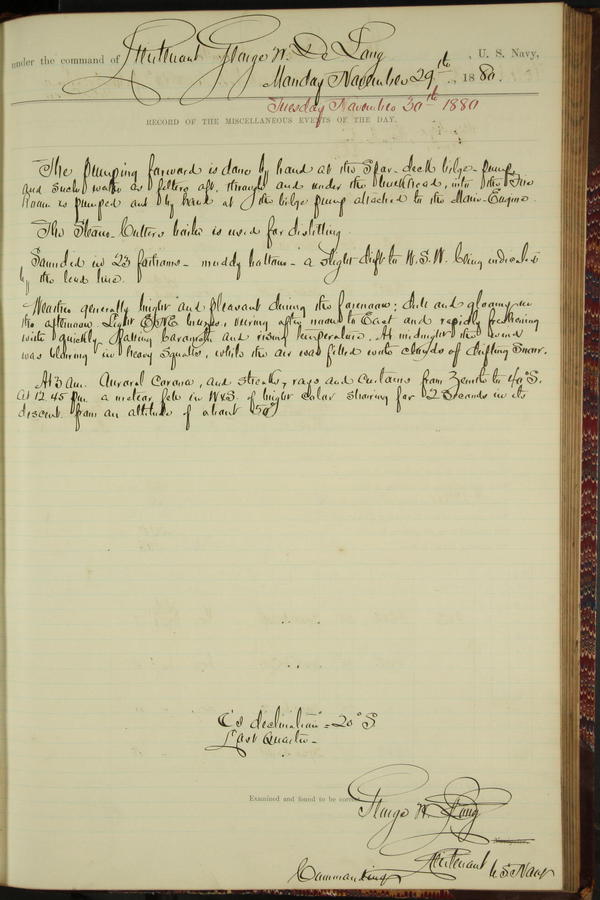 under the command of Lieutenant George W. De Long, U. S. Navy,
Monday November 29th, 1880.
Tuesday November 30th 1880
RECORD OF THE MISCELLANEOUS EVENTS OF THE DAY.
The pumping forward is done by hand at the Spar-deck bilge-pump,
and such water as filters aft, through and under the bulkhead, into the Fire
Room is pumped out by hand at the bilge pump attached to the Main-Engine.
The Steam-Cutters boiler is used for distilling.
Sounded in 23 fathoms - muddy bottom - a slight drift to W.S.W. being indicated
by the lead line.
Weather generally bright and pleasant during the forenoon; dull and gloomy in
the afternoon. Light breezes, veering after noon to East and rapidly freshening
with quickly falling barometer and rising temperature. At midnight the wind
was blowing in heavy squalls, while the air was filled with clouds of drifting snow.
At 3 am. Auroral Corona, and streaks, rays and curtains from Zenith to 40° S.
At 12.45 pm. a meteor fell in of bright color showing for 2 Seconds in its
descent from an altitude of about 50°
☾'s declination = 20° S
Last Quarter -
Examined and found to be correct.
George W. De Long
Lieutenant U.S. Navy
Commanding